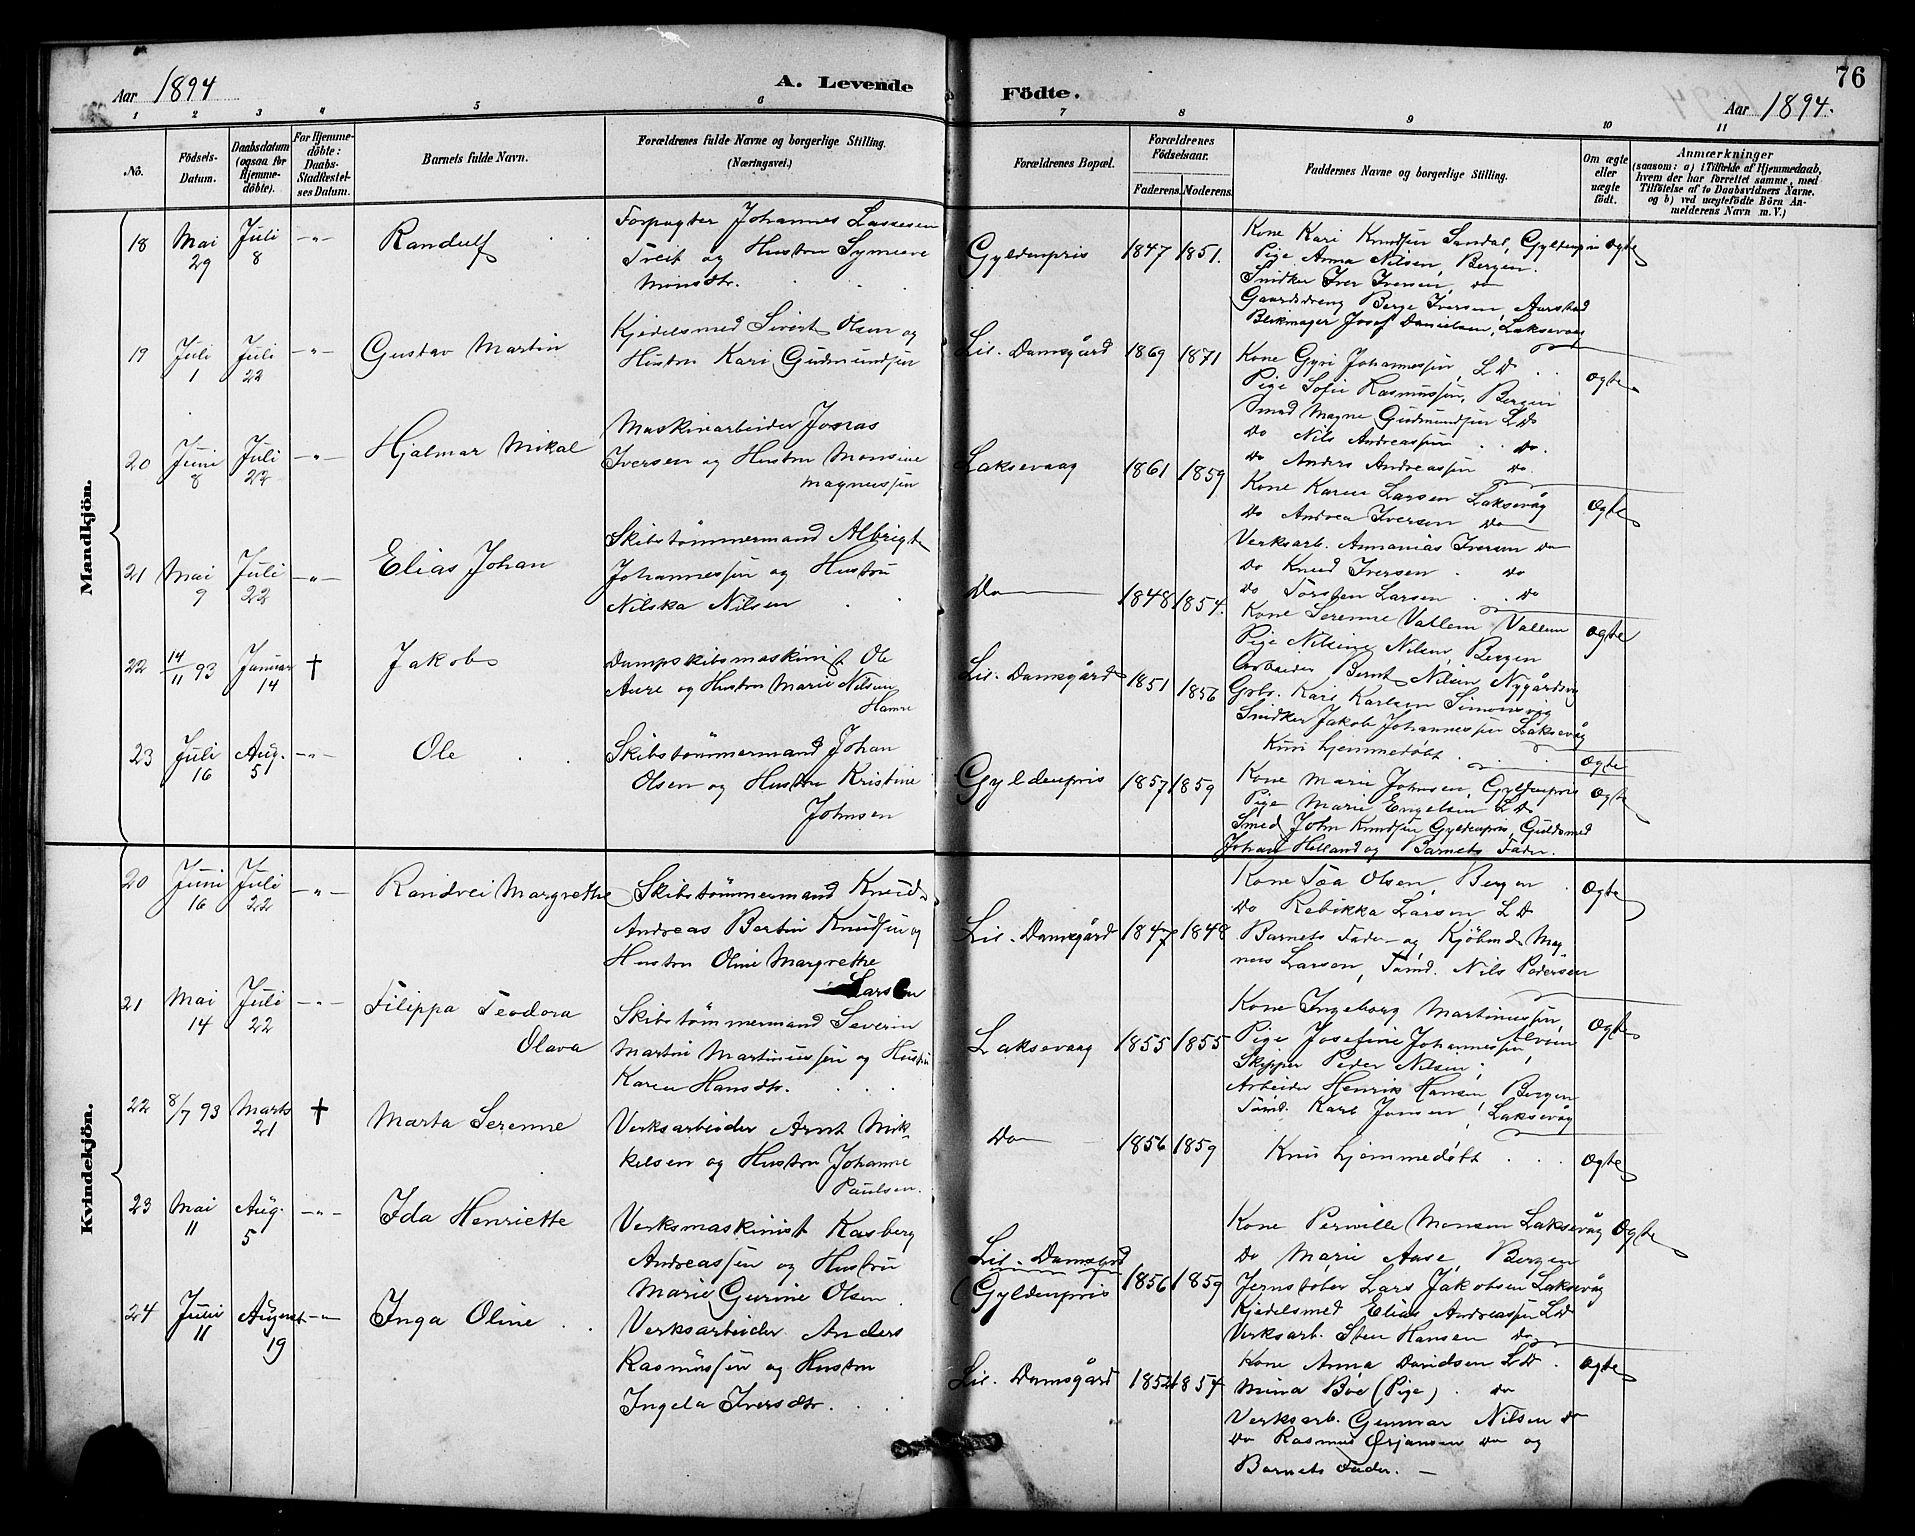 Aar 1894
A. Levende
Födte.
76
Aar 1894.
1 2 3 4 5 6 7 8 9 10 11
No.
Födsels-
Datum.
Daabsdatum
(ogsaa for
Hjemme-
döbte).
For Hjemme-
döbte:
Daabs-
Stadfæstel-
ses Datum.
Barnets fulde Navn.
Forældrenes fulde Navne og borgerlige Stilling.
(Næringsvei.)
Forældrenes Bopæl.
Forældrenes
Födselsaar.
Faderens. Moderens.
Faddernes Navne og borgerlige Stilling.
Om ægte
eller
uægte
födt.
Anmærkninger
(saasom: a) i Tilfælde af Hjemmedaab,
hvem der har forrettet samme, med
Tilföielse af to Daabsvidners Navne.
og b) ved uægtefödte Börn An-
melderens Navn m. V.)
Mandkjön.
18 Mai 29 Juli 8 -"- Randulf
Forpagter Johannes Lassesen
Treit og Hustru Synneve
Monsdtr.
Gyldenpris 1847 1851.
Kone Kari Knudsen Sandal, Gyldenpris
Pige Anna Nilsen, Bergen.
Snidker Iver Iversen, do
Gaardsdreng Berge Iversen, Aarstad
Blikmager Josef Danielsen, Laksevaag
ægte
19 Juli 1 Juli 22 -"- Gustav Martin
Kjedelsmed Sivert Olsen og
Hustru Kari Gudmundsen
Lil. Damsgård 1869 1871
Kone Gyri Johannessen, L D
Pige Sofie Rasmussen, Bergen
Smed Magne Gudmundsen L D
do Nils Andreassen do.
do Anders Andreassen do.
ægte
20 Juni 8 Juli 22 -"- Hjalmar Mikal
Maskinarbeider Jonas
Iversen og Hustru Monsine
Magnussen
Laksevaag 1861 1859
Kone Karen Larsen Laksevåg
do Andrea Iversen do
Verksarb. Annanias Iversen do
do Knud Iversen do
do Torsten Larsen do
ægte
21 Mai 9 Juli 22 -"- Elias Johan
Skibstömmermand Albrigt
Johannessen og Hustru
Nilska Nilsen
Do 1848 1854.
Kone Serenne Vallem Vallem
Pige Nilsine Nilsen, Bergen
Arbeider Bernt Nilsen Nygårdsvg
Karl Karlsen Simonsvig
Snidker Jakob Johannessen Laksevåg
ægte
22 14/11 93 Januar 14 † Jakob
Dampskibsmaskinist Ole
Aure og Hustru Marie Nilsen
Hamre
Lil. Damsgård 1851 1856
Kun hjemmedöbt
ægte
23 Juli 16 Aug. 5 -"- Ole
Skibstömmermand Johan
Olsen og Hustru Kristine
Johnsen
Gyldenpris 1857 1859
Kone Marie Johnsen, Gyldenpris
Pige Marie Engelsen L D
Smed John Knudsen Gyldenpris, Guldsmed
Johan Helland og Barnets Fader.
ægte
Kvindekjön.
20 Juni 16 Juli 22 -"- Randvei Margrethe
Skibstömmermand Knud
Andreas Bertin Knudsen og
Hustru Oline Margrethe
Larsen
Lil. Damsgård 1847 1848
Kone Tea Olsen, Bergen
do Rebikka Larsen L D
Barnets Fader og Kjöbmd. Mag-
nus Larsen, Tömd. Nils Pedersen
ægte
21 Mai 14 Juli 22 -"- Filippa Teodora
Olava
Skibstömmermand Severin
Martin Martinussen og Hustru
Karen Hansdtr.
Laksevaag 1855 1855
Kone Ingeborg Martinussen,
Pige Josefine Johannessen, Alvöen
Skipper Peder Nilsen,
Arbeider Henrik Hansen, Bergen
Tömd. Karl Jonsen, Laksevåg
ægte
22 8/7 93 Marts 21 † Marta Serenne
Verksarbeider Arnt Mik-
kelsen og Hustru Johanne
Paulsen.
Do 1856 1859
Kun hjemmedöbt
ægte
23 Mai 11 Aug. 5 -"- Ida Henriette
Verksmaskinist Kasberg
Andreassen og Hustru
Marie Gurine Olsen
Lil. Damsgrd
(Gyldenpris 1856 1859
Kone Pernille Monsen Laksevåg
do Marie Aase, Bergen
Jernstöber Lars Jakobsen Laksevåg
Kjedelsmed Elias Andreassen L D
Verksarb. Sten Hansen do
ægte
24 Juni 11 August 19 -"- Inga Oline
Verksarbeider Anders
Rasmussen og Hustru
Ingela Iversdtr.
Lil. Damsgård 1852 1854
Kone Anna Davidsen L D.
Mina Böe (Pige) do
Verksarb. Gunnar Nilsen do
do Rasmus Örjansen do og
Barnets Fader.
ægte